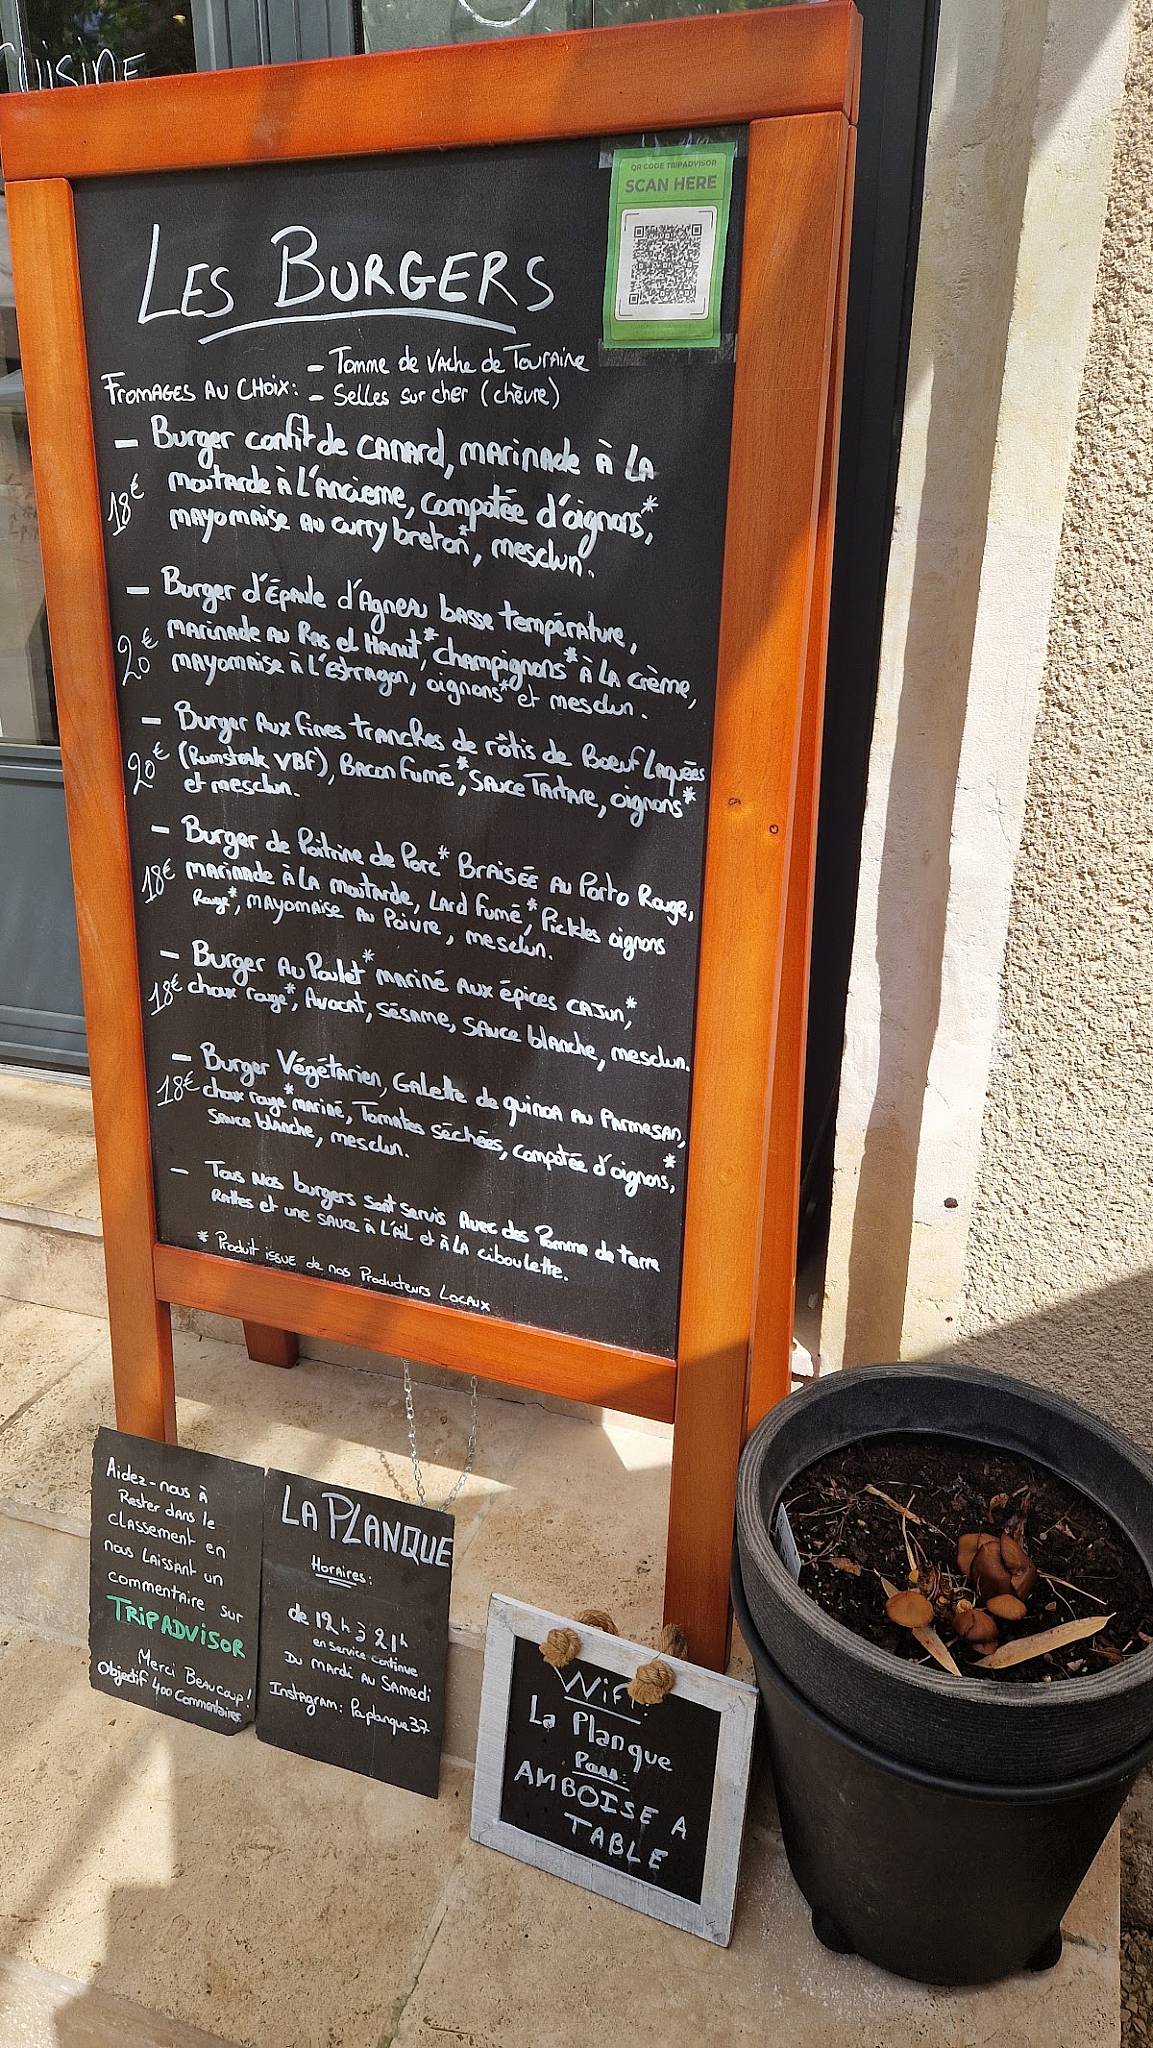 Cuisine
QR CODE TRIPADVISOR
SCAN HERE
LES BURGERS
FROMAGES AU CHOIX:
- Tomme de vache de Touraine
- Selles sur cher (chèvre)
- Burger confit de canard, marinade à la
18€ moutarde à l'Ancienne, compotée d'oignons*,
mayonnaise au curry breton*, mesclun.
- Burger d'Épaule d'Agneau basse température,
20€ marinade au Ras el Hanut*, champignons* à la crème,
mayonnaise à l'Estragon, oignons* et mesclun.
- Burger Aux fines tranches de rôtis de Boeuf Laquées
20€ (Rumsteak VBF), Bacon fumé*, Sauce Tartare, oignons*
et mesclun.
- Burger de Poitrine de Porc* Braisée au Porto Rouge,
18€ marinade à la moutarde, Lard fumé*, Pickles oignons
Rouge*, mayonnaise au Poivre, mesclun.
- Burger Au Poulet* mariné aux épices cajun*,
18€ choux rouge*, Avocat, sésame, sauce blanche, mesclun.
- Burger Végétarien, Galette de quinoa au Parmesan,
18€ choux rouge* mariné, Tomates séchées, compotée d'oignons*,
sauce blanche, mesclun.
- Tous nos burgers sont servis avec des Pomme de terre
Rattes et une sauce à l'ail et à la ciboulette.
* Produit issue de nos Producteurs Locaux
Aidez-nous à
Rester dans le
classement en
nous laissant un
commentaire sur
TRIPADVISOR
Merci Beaucoup!
Objectif 400 Commentaires
LA PLANQUE
Horaires:
de 12h à 21h
en service continue
Du mardi au Samedi
Instagram: laplanque37
Wifi:
La Planque
Pass:
AMBOISE A
TABLE